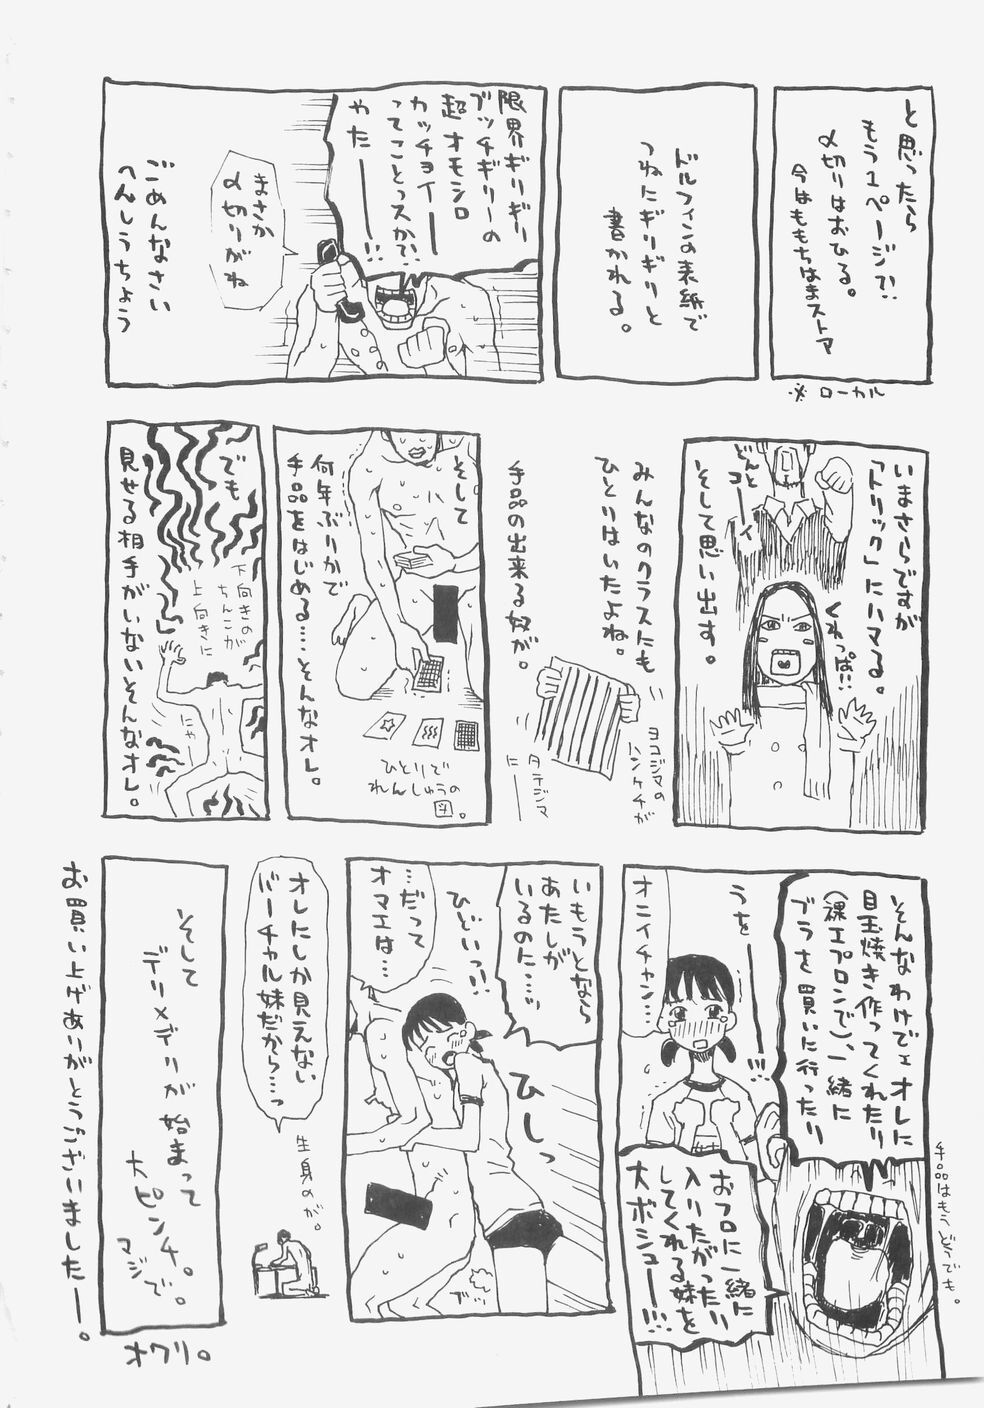 と思ったら
もう1ページ?!
〆切りはおひる。
今はももちはまストア
※ローカル
ドルフィンの表紙で
つねにギリギリと
書かれる。
限界ギリギリ
ブッチギリーの
超オモシロ
カッチョイー
ってことっスか?!
やたーーー!!
まさか
〆切りがね
ごめんなさい
へんしうちょう
いまさらですが
「トリック」にハマる。
そして思い出す。
どんと
コーイ
くわっぱ!!
みんなのクラスにも
ひとりはいたよね。
手品の出来る奴が。
ヨコジマの
ハンケチが
タテジマ
にーーー
そして
何年ぶりかで
手品をはじめる…そんなオレ。
ひとりで
れんしゅうの
図。
でも
見せる相手がいないそんなオレ。
下向きの
ちんこが
上向きに
にゃ
そんなわけでェオレに
目玉焼き作ってくれたり
(裸エプロンで)、一緒に
ブラを買いに行ったり
うをーーー!!!
オニイチャン…
おフロに一緒に
入りたがったり
してくれる妹を
大ボシュー!!!
手品はもうどうでも。
いもうとなら
あたしが
いるのに…っ
ひどいっ!!
…だって
オマエは…
ひしっ
オレにしか見えない
バーチャル妹だから…っ
生身のが。
そして
デリメデリが始まって
大ピンチ。
マジで。
オワリ。
お買い上げありがとうございましたー。